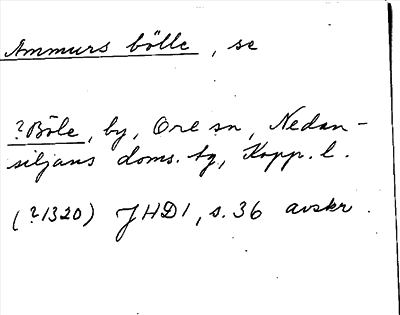 Ammurs bölle, se
?Böle, by, Ore sn, Nedan-
siljans doms. tg, Kopp. l.
(?1320) JHD1, s. 36 avskr.